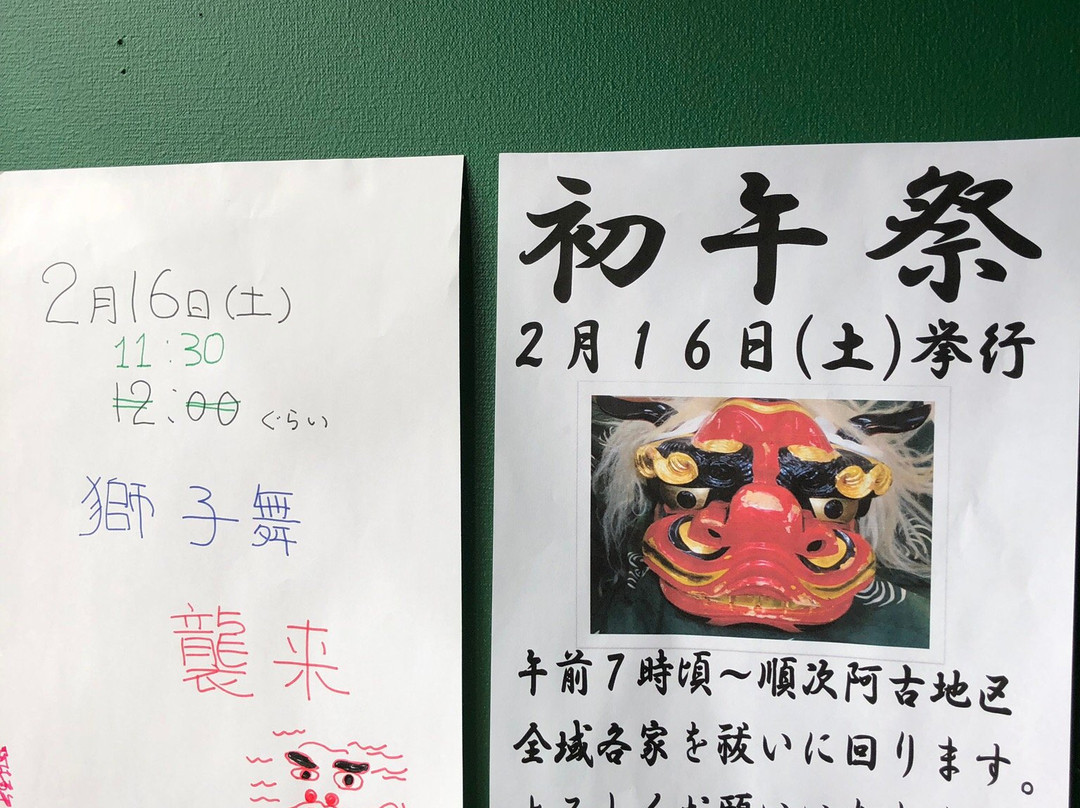 2月16日(土)
11:30
12:00 ぐらい
獅子舞
襲来
初午祭
2月16日(土)挙行
午前7時頃～順次阿古地区
全域各家を祓いに回ります。